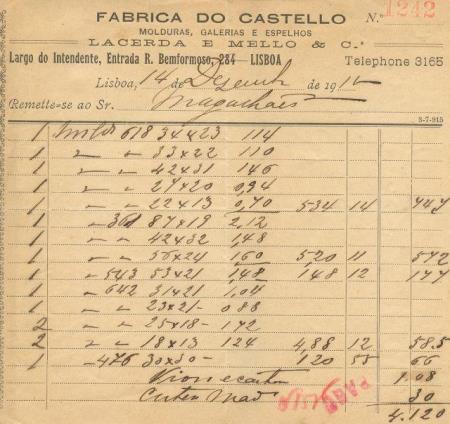 FABRICA DO CASTELLO Nº 1242
MOLDURAS, GALERIAS E ESPELHOS
LACERDA E MELLO & C.ª
Largo do Intendente, Entrada R. Bemformoso, 284—LISBOA Telephone 3165
Lisboa, 14 de Dezemb de 191
Remette-se ao Sr. Magalhaes
3-7-915
1 Mold 618 34x23 114
1 " " 33x22 110
1 " " 42x31 146
1 " " 27x20 0,94
1 " " 22x13 0,70 534 14 747
1 " 361 87x19 2,12
1 " " 42x32 1,48
1 " " 56x24 160 520 11 572
1 " 543 53x21 148 148 12 177
1 " 642 31x21 1,04
1 " " 23x21 - 088
2 " " 25x18 - 172
2 " " 18x13 124 4,88 12 585
1 - 476 30x30 - 120 55 66
1.08
30
PAGO
4.120